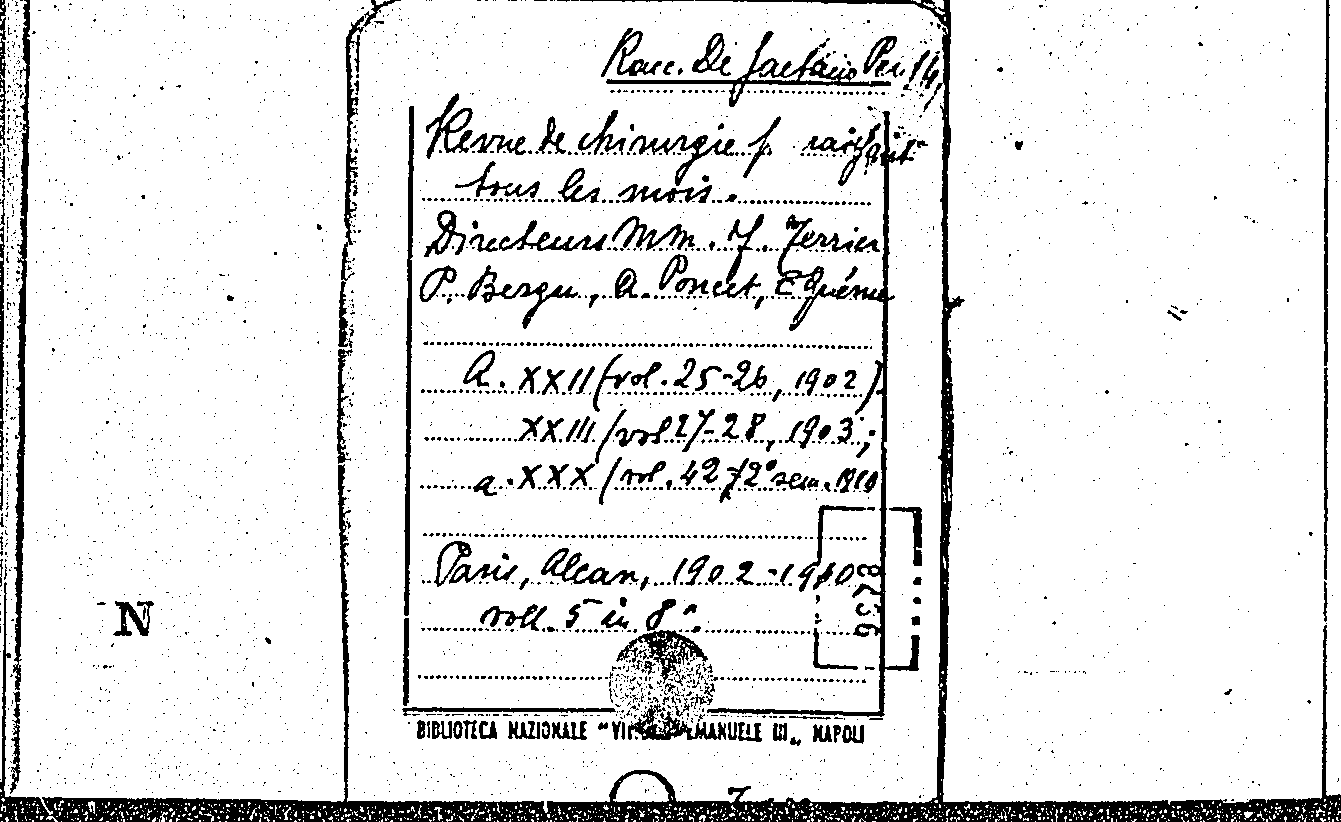 Racc. De Gaetano Per. 14
Revue de chirurgie p. raissant
tous les mois.
Directeurs MM. F. Terrier
P. Berger, A. Poncet, E Quénu
A. XXII (vol. 25-26, 1902)
XXIII (vol 27-28, 1903;
a. XXX (vol. 42-/2° sem. 1910
Paris, Alcan, 1902-1910
voll. 5 in 8°.
N
BIBLIOTECA NAZIONALE "VITTORIO EMANUELE III„ NAPOLI